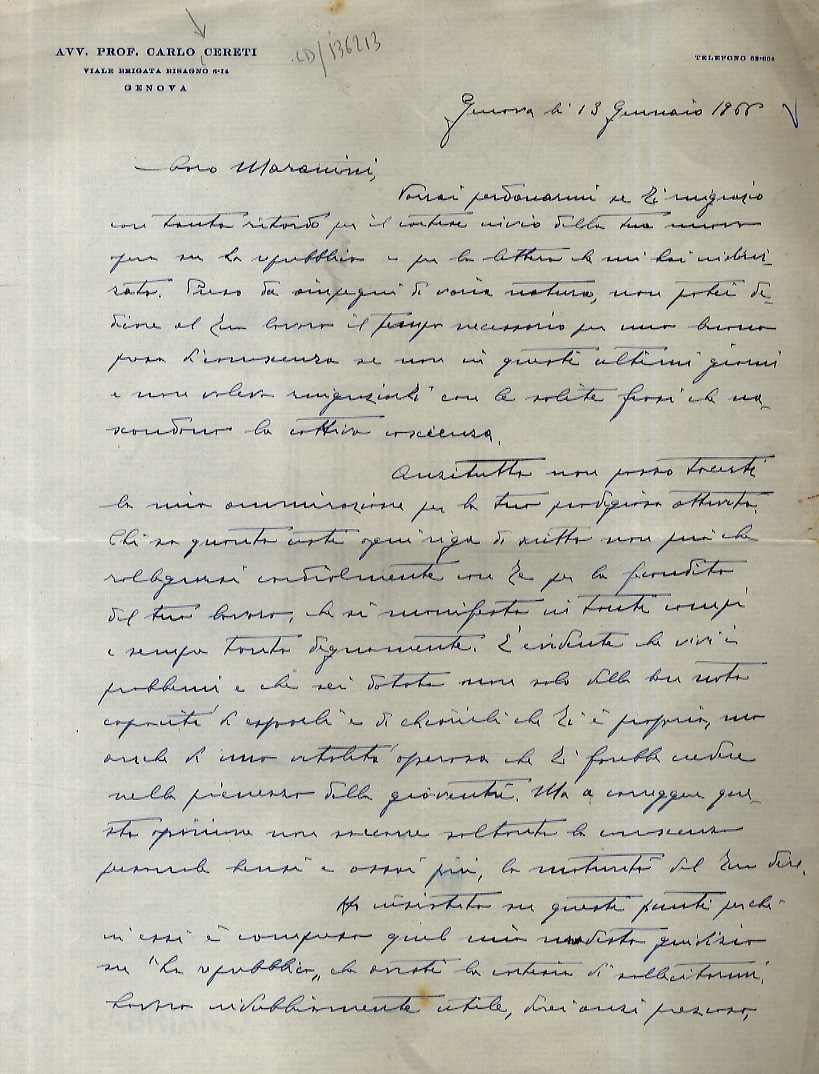 AVV. PROF. CARLO CERETI
VIALE BRIGATA BISAGNO 6-14
GENOVA
CD/136213
TELEFONO 52-004
Genova li 13 Gennaio 1966
Caro Maranini,
Vorrai perdonarmi se Ti ringrazio
con tanto ritardo per il cortese invio della tua nuova
opera su La repubblica e per la lettera che mi hai indiriz-
zato. Preso da impegni di varia natura, non potei de-
dicare al Tuo lavoro il tempo necessario per una buona
presa di conoscenza se non in questi ultimi giorni
e non volevo ringraziarti con le solite frasi che na-
scondono la cattiva coscienza.
Anzitutto non posso tacerti
la mia ammirazione per la tua prodigiosa attività.
Chi sa quanto costi ogni riga di scritto non può che
rallegrarsi cordialmente con Te per la fecondità
del tuo lavoro, che si manifesta in tanti campi
e sempre tanto degnamente. È evidente che vivi i
problemi e che sei dotato non solo della ben nota
capacità di esporli e di chiarirli che Ti è propria, ma
anche di una vitalità operosa che Ti farebbe credere
nella pienezza della gioventù. Ma a correggere que-
sta opinione non soccorre soltanto la conoscenza
personale bensì e assai più, la maturità del Tuo dire.
Ho insistito su questi punti perchè
in essi è compreso quel mio modesto giudizio
su "La repubblica" che avesti la cortesia di sollecitarmi.
Lavoro indubbiamente utile, direi anzi prezioso,